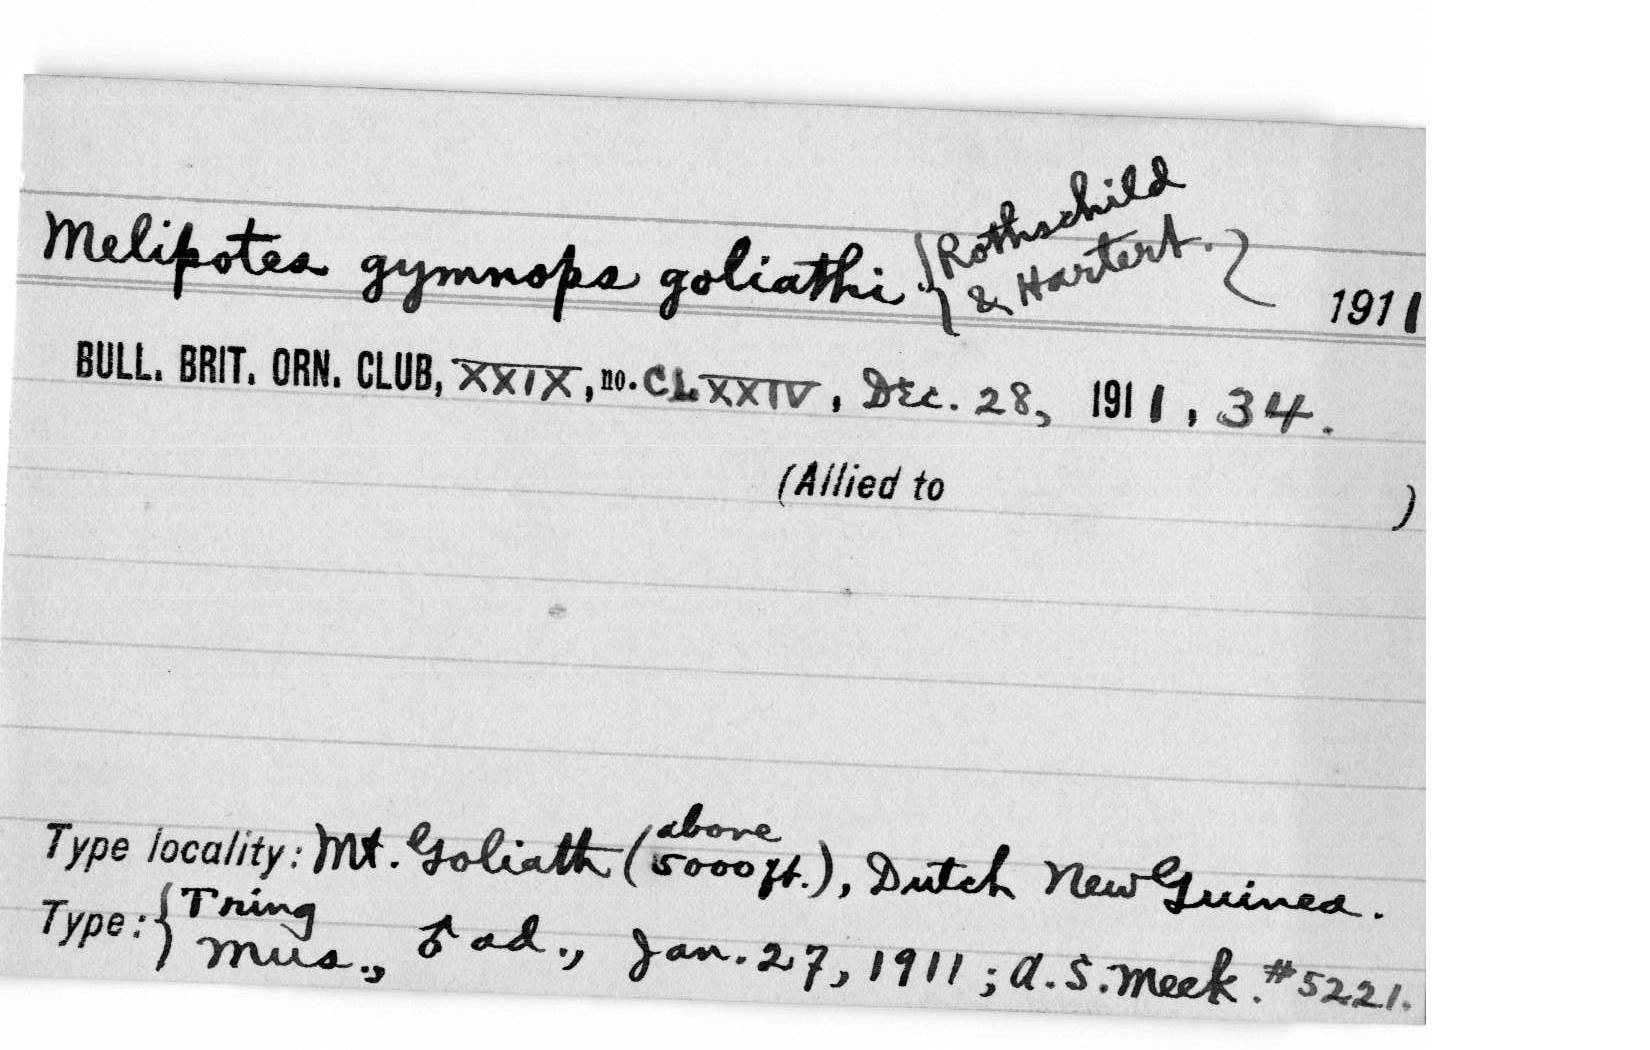 Melipotes gymnops goliathi. {Rothschild & Hartert.} 1911
BULL. BRIT. ORN. CLUB, XXIX, no. CLXXIV, Dec. 28, 1911, 34.
(Allied to )
Type locality: Mt. Goliath (above 5000 ft.), Dutch New Guinea.
Type: {Tring Mus., ♂ ad., Jan. 27, 1911; A. S. Meek. #5221.